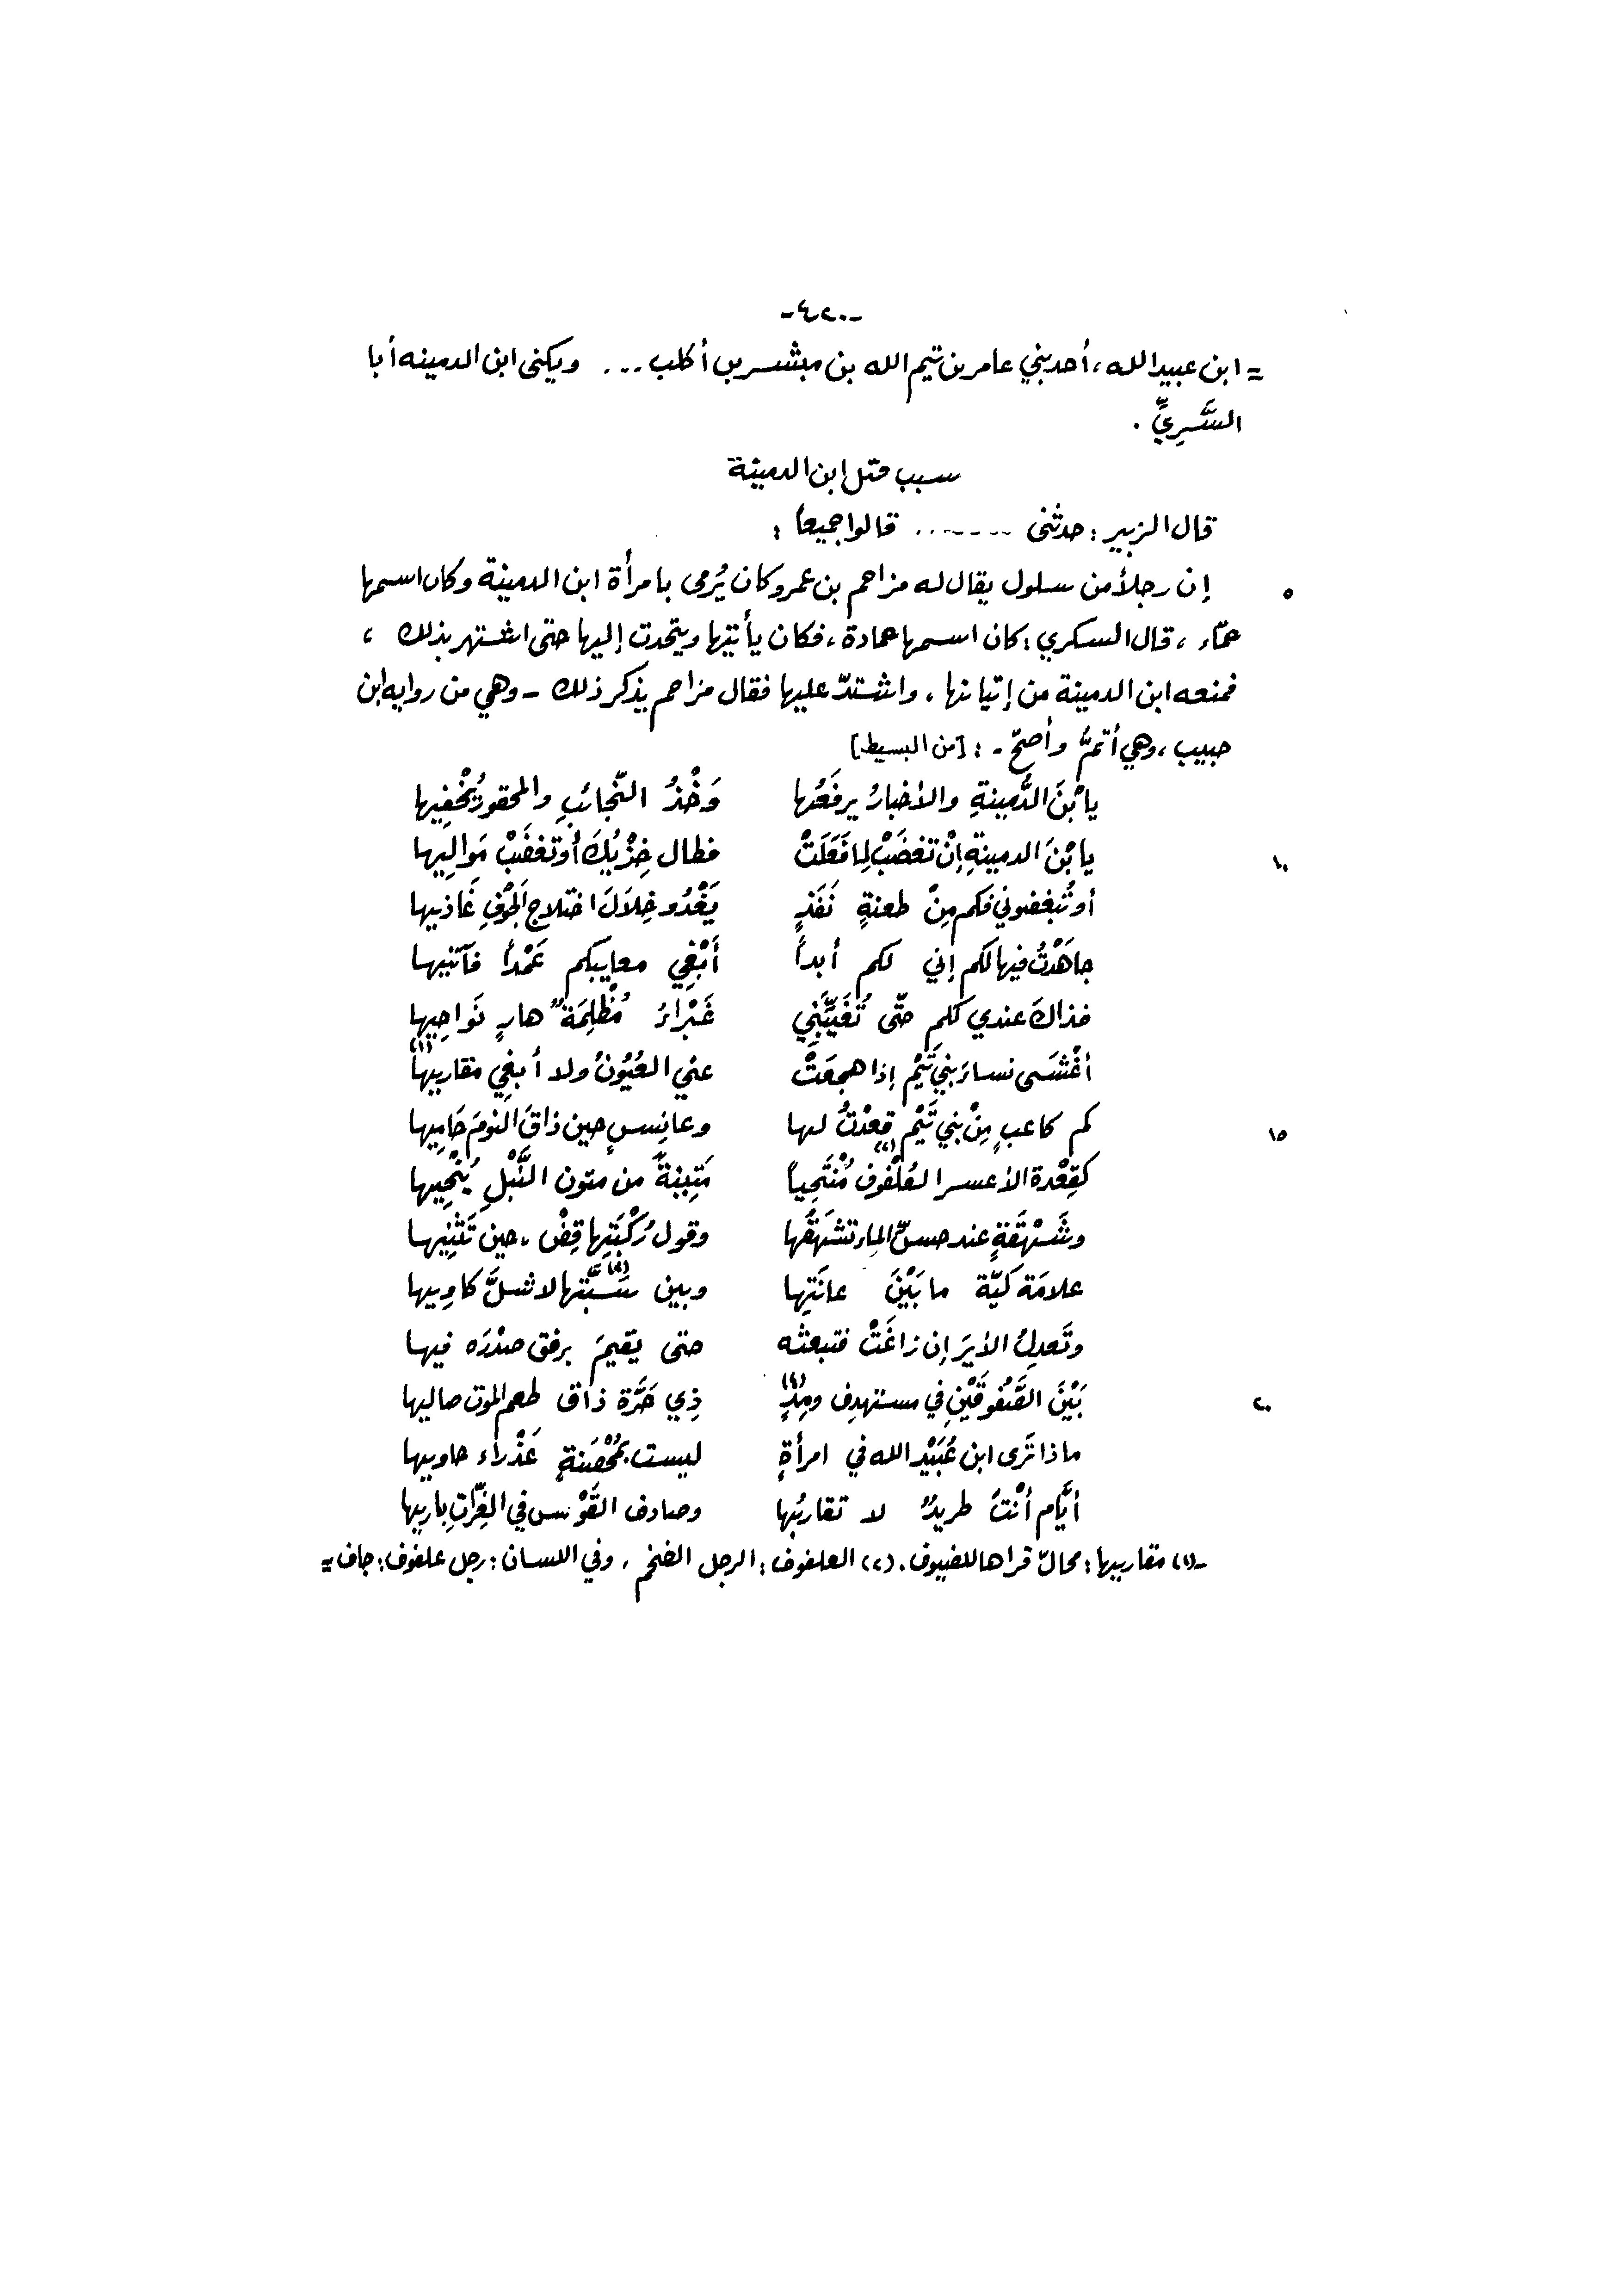 -٤٢٠-
= ابن عبيد الله، أحد بني عامر بن تيم الله بن مبشر بن أكلب ... ويكنى ابن الدمينه أبا
السَّرِيِّ .
سبب مقتل ابن الدمينة
قال الزبير : حدثنى ....... قالوا جميعاً :
٥ إن رجلاً من سلول يقال له مزاحم بن عمرو كان يُرمى بامرأة ابن الدمينة وكان اسمها
حمّاء ، قال السكري : كان اسمها حمادة ، فكان يأتيها ويتحدث إليها حتى اشتهر بذلك ،
فمنعه ابن الدمينة من إتيانها ، واشتدّ عليها فقال مزاحم يذكر ذلك - وهي من روايه ابن
حبيب ، وهي أتمُّ وأصحّ - : [من البسيط]
يا بْنَ الدُّمينةِ والأخبارُ يرفَعُها وَخْدُ النّجائبِ والمحقورُ يُخْفِيها
١٠ يا بْنَ الدمينةِ إنْ تغضَبْ لِما فَعَلَتْ فطال خِزْيُكَ أو تغضَبْ مَوالِيها
أو تُبغِضوني فكم مِنْ طعنةٍ نَفَذٍ يَغْدُو خِلاَلَ اختلاجِ الجَوْفِ غاذيها
جاهَدْتُ فيها لكم إني لكم أبداً أَبْغِي معايبكم عَمْداً فآتيها
فذاكَ عندي لكم حتّى تُغَيِّبَنِي غَبْراءُ مُظْلِمَةٌ هارٍ نَواحِيها
أغْشَى نساءَ بني تَيْمٍ إذا هجعَتْ عني العُيُونُ ولا أبغي مقاريها (١)
١٥ كم كاعبٍ مِنْ بني تَيْمٍ قعدْتُ لها وعانِسٍ حين ذاقَ النومَ حَامِيها
كقِعْدة الأعسر العُلْفوف (٢) مُنْتَحِياً مَتِينةً من متون النَّبْلِ يُنْحِيها
وشَهْقَةٍ عند حسّ الماء تشهَقُها وقول رُكْبَتِها قِضْ ، حين تَثْنِيها
علامَة كَيّة ما بَيْنَ عانَتِها وبين سَبَّتها (٣) لا شلَّ كاوِيها
وتَعدِلُ الأيرَ إن زاغَتْ فتبعثه حتى يقيمَ برفق صدْرَه فيها
٢٠ بَيْنَ الصَّفُوقَيْنِ في مستهدِف ومِدٍ (٤) ذِي حَرَّة ذاق طعم الموت صاليها
ماذا تَرى ابن عُبَيْد الله في امرأةٍ ليست بمُحْصَنةٍ عَذْراء حاويها
أيَّام أنْتَ طريدٌ لا تقاربُها وصادف القَوْس في الغِرّاتِ باريها
-(١) مقاريها : محالّ قراها للضيوف . (٢) العلفوف : الرجل الضخم ، وفي اللسان : رجل علفوف : جاف =